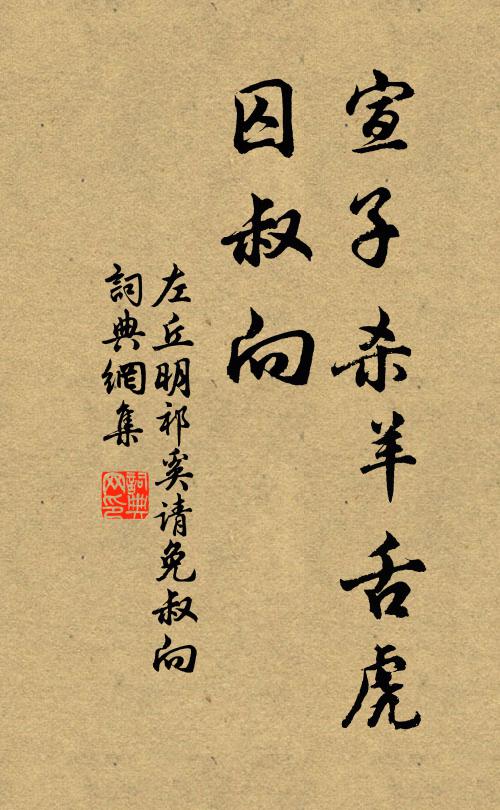 宣子杀羊舌虎
囚叔向
左丘明祁奚请免叔向
詞典網集
詞典网印